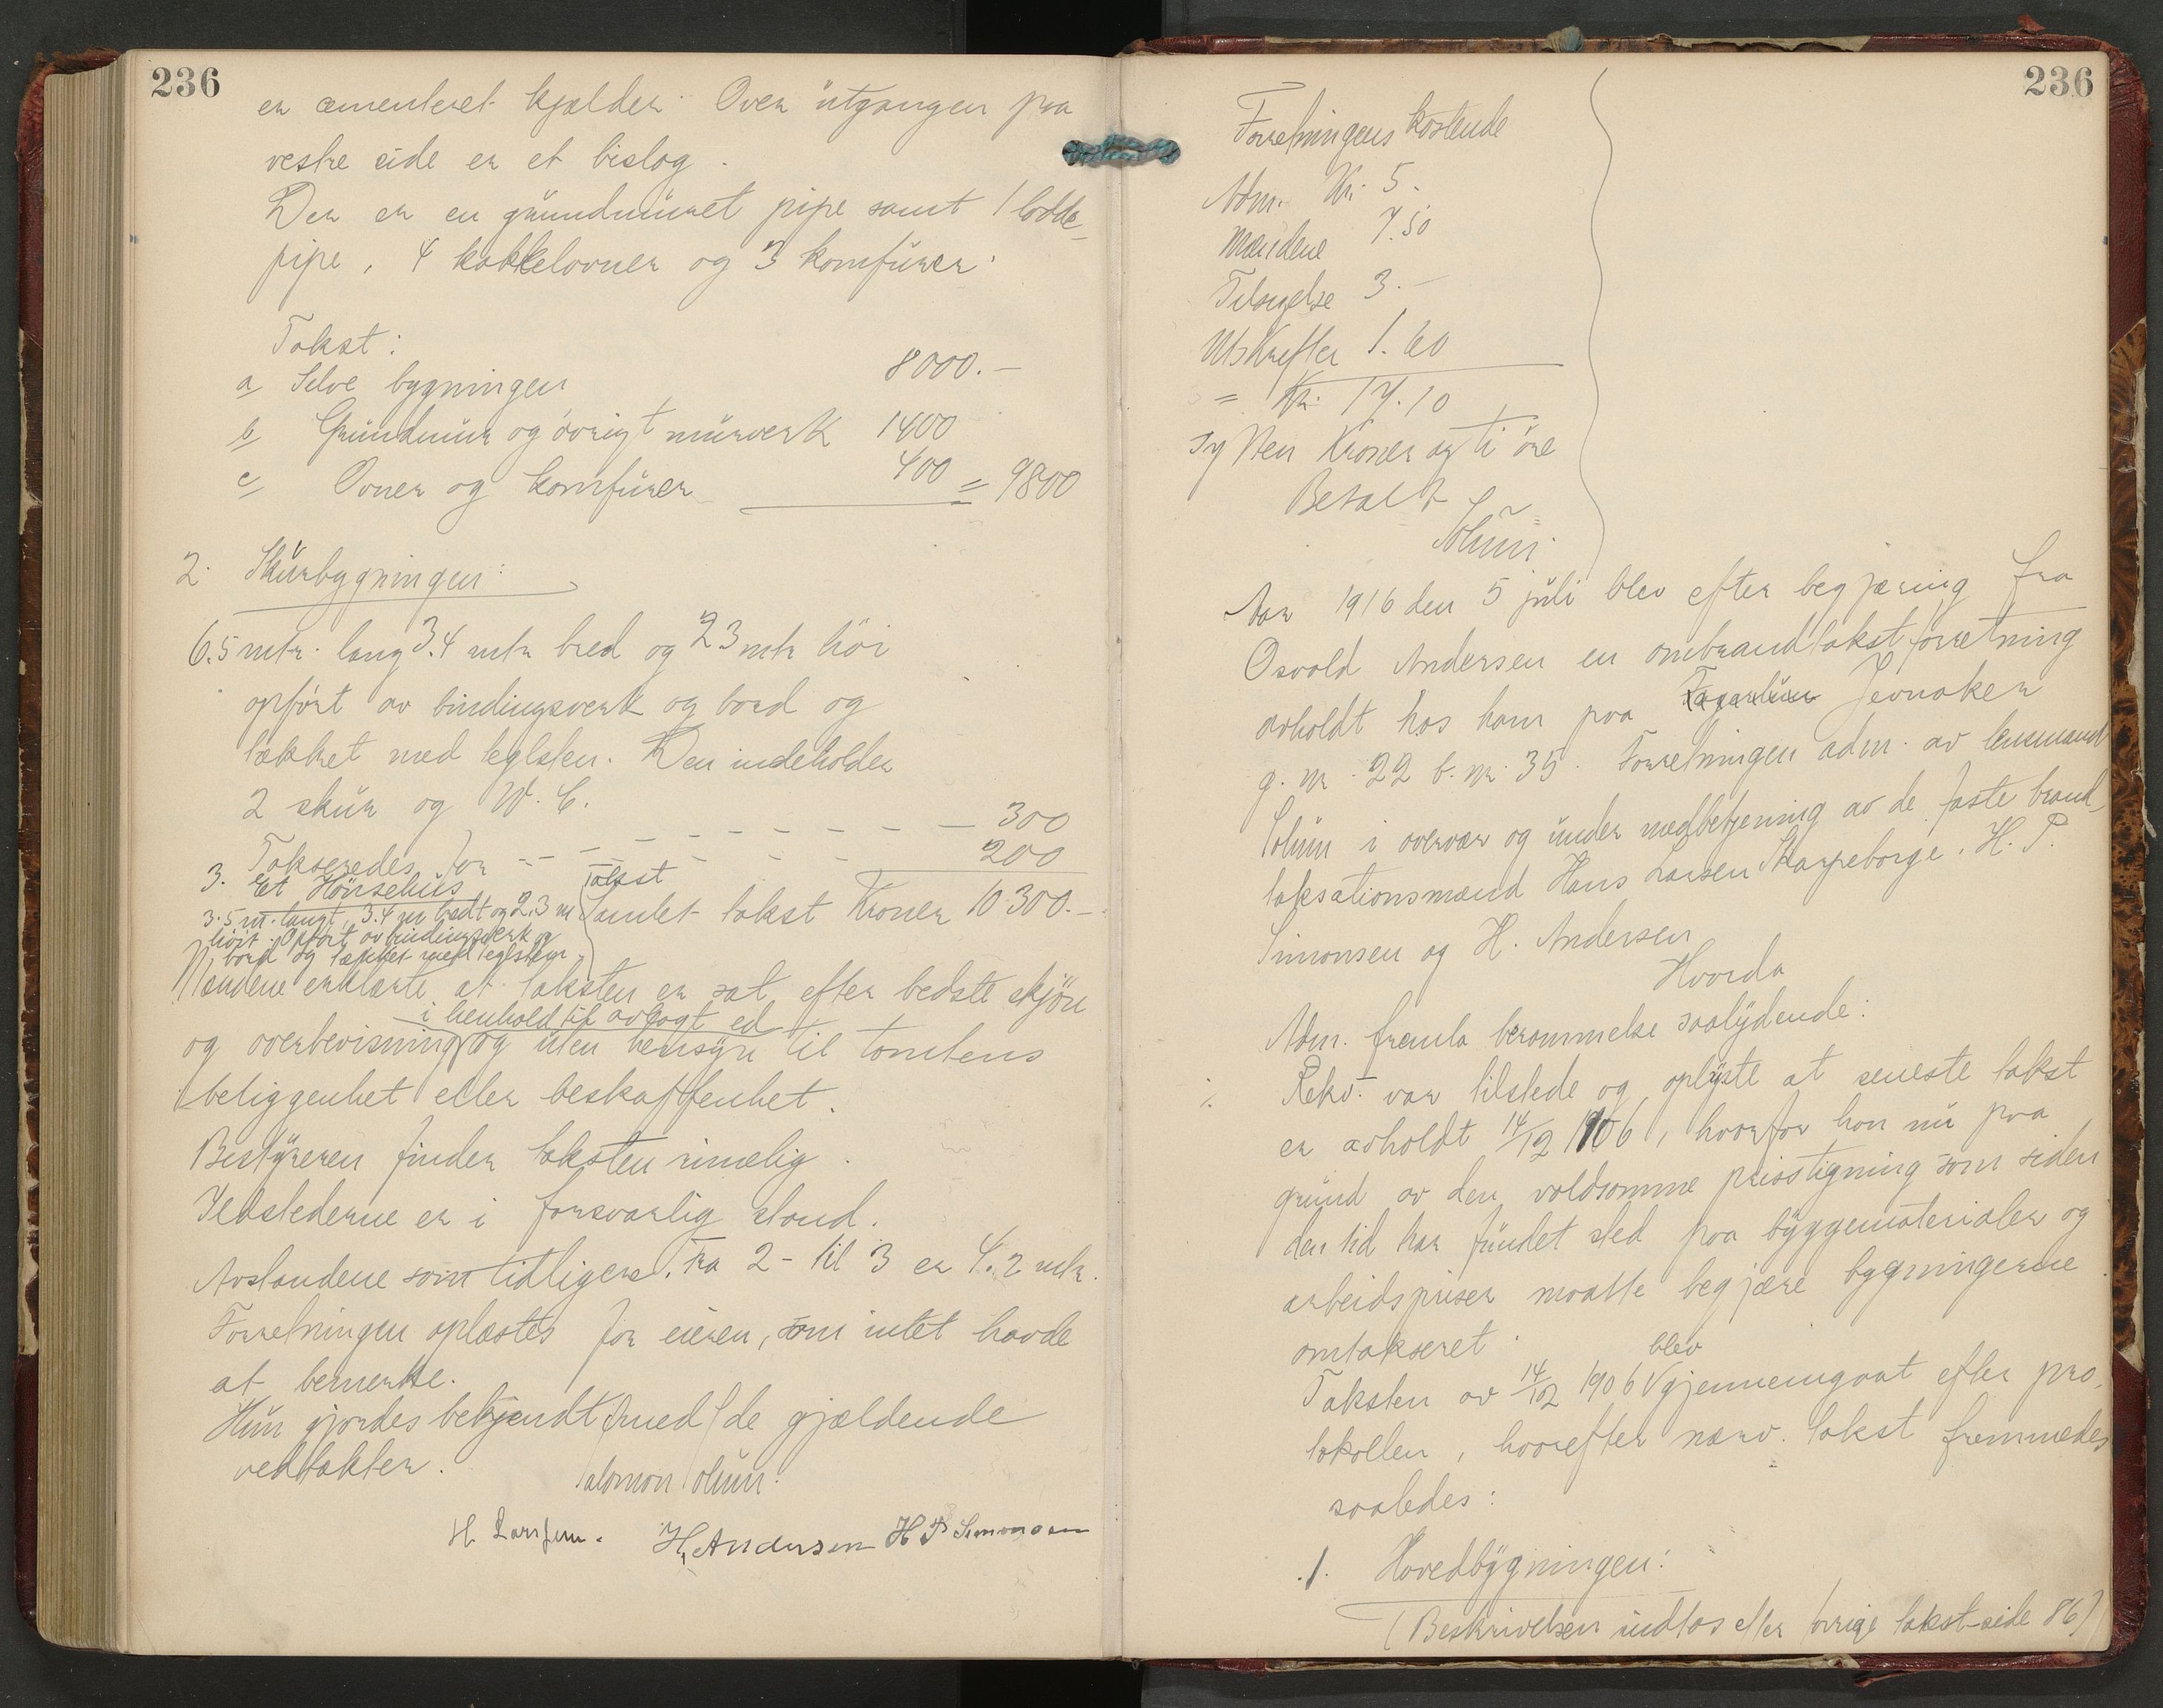 236
er cementeret kjælder. Over utgangen paa
vestre side er et bislag.
Der er en grundmuret pipe samt 1 lodde-
pipe, 4 kakkelovner og 3 komfurer.
Takst:
a Selve bygningen 8000.—
b Grundmur og övrigt murverk 1400
c Ovner og komfurer 400 = 9800
2. Skurbygningen:
6.5 mtr. lang 3.4 mtr bred og 2.3 mtr höi
opfört av bindingsverk og bord og
tækket med teglsten. Den indeholder
2 skur og W.C.
Takseredes for — — — — — — — — 300
3. Et Hönsehus Takst — — — — 200
3.5 m. langt, 3.4 m bredt og 2.3 m
höit. Opfört av bindingsverk og
bord og tækket med teglsten.
Samlet takst Kroner 10300.—
Mændene erklærte at taksten er sat efter bedste skjön
i henhold til avlagt ed
og overbevisning og uten hensyn til tomtens
beliggenhet eller beskaffenhet.
Bestyreren finder taksten rimelig.
Ildstederne er i forsvarlig stand.
Avstandene som tidligere. Fra 2 - til 3 er 4.2 mtr.
Forretningen oplæstes for eieren, som intet havde
at bemerke.
Hun gjordes bekjendt med de gjældende
vedtakter.
Salomon Solum.
H. Larssen. H. Andersen H P Simonsen
236
Forretningens kostende
Adm. Kr. 5.
Mændene 7.50
Tilsigelse 3.—
Utskrefter 1.60
= Kr. 17.10
Sytten Kroner og ti öre
Betalt
Solum.
Aar 1916 den 5 juli blev efter begjæring fra
Osvald Andersen en ombrandtakstforretning
avholdt hos ham paa Jevnaker
g. nr. 22 b. nr. 35. Forretningen adm. av lensmand
Solum i overvær og under medbetjening av de faste brand-
taksationsmænd Hans Larsen Skarpeborge, H. P.
Simonsen og H. Andersen
Hvorda
Adm. fremla berammelse saalydende:
Rekv. var tilstede og oplyste at seneste takst
er avholdt 14/12 1906, hvorfor han nu paa
grund av den voldsomme prisstigning som siden
den tid har fundet sted paa byggematerialer og
arbeidspriser maatte begjære bygningerne
omtakseret.
blev
Taksten av 14/12 1906 V gjennemgaat efter pro-
tokollen, hvorefter nærv. takst fremmedes
saaledes:
1. Hovedbygningen:
(Beskrivelsen indtas efter forrige takst-side 86)